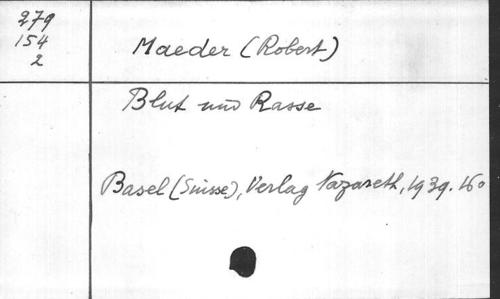 279
154
2
Maeder (Robert)
Blut und Rasse
Basel (Suisse), Verlag Nazareth, 1939. 16°